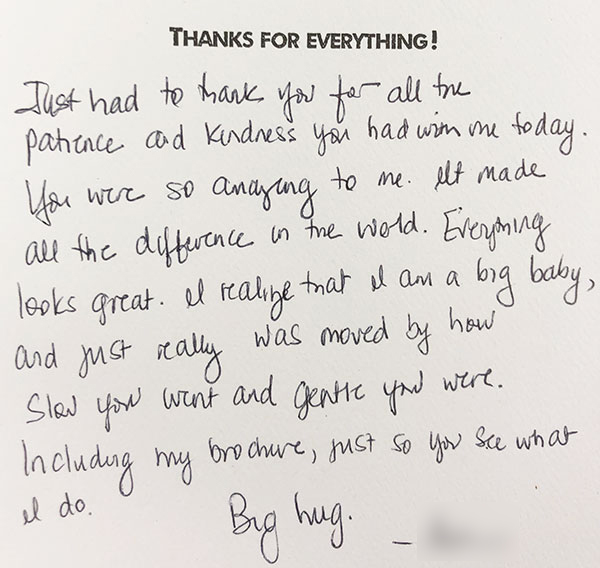 THANKS FOR EVERYTHING!
Just had to thank you for all the
patience and kindness you had with me today.
You were so amazing to me. It made
all the difference in the world. Everything
looks great. I realize that I am a big baby,
and just really was moved by how
slow you went and gentle you were.
Including my brochure, just so you see what
I do.
Big hug.
–